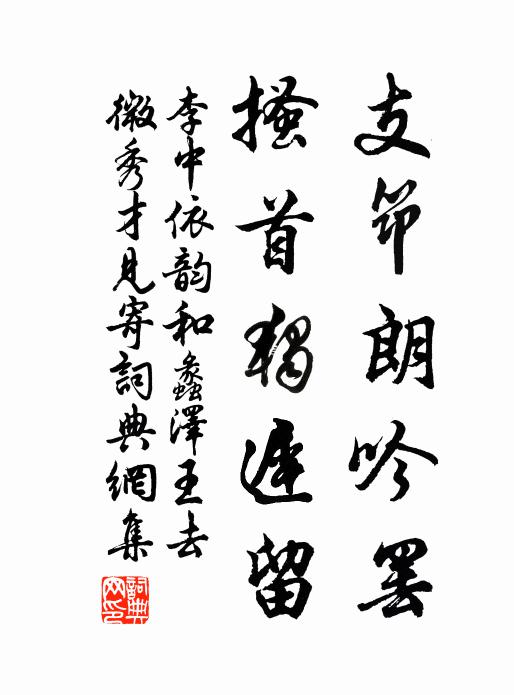 支筇朗吟罢
搔首獨遲留
李中依韵和蠡澤王去
微秀才見寄詞典網集
詞典网印